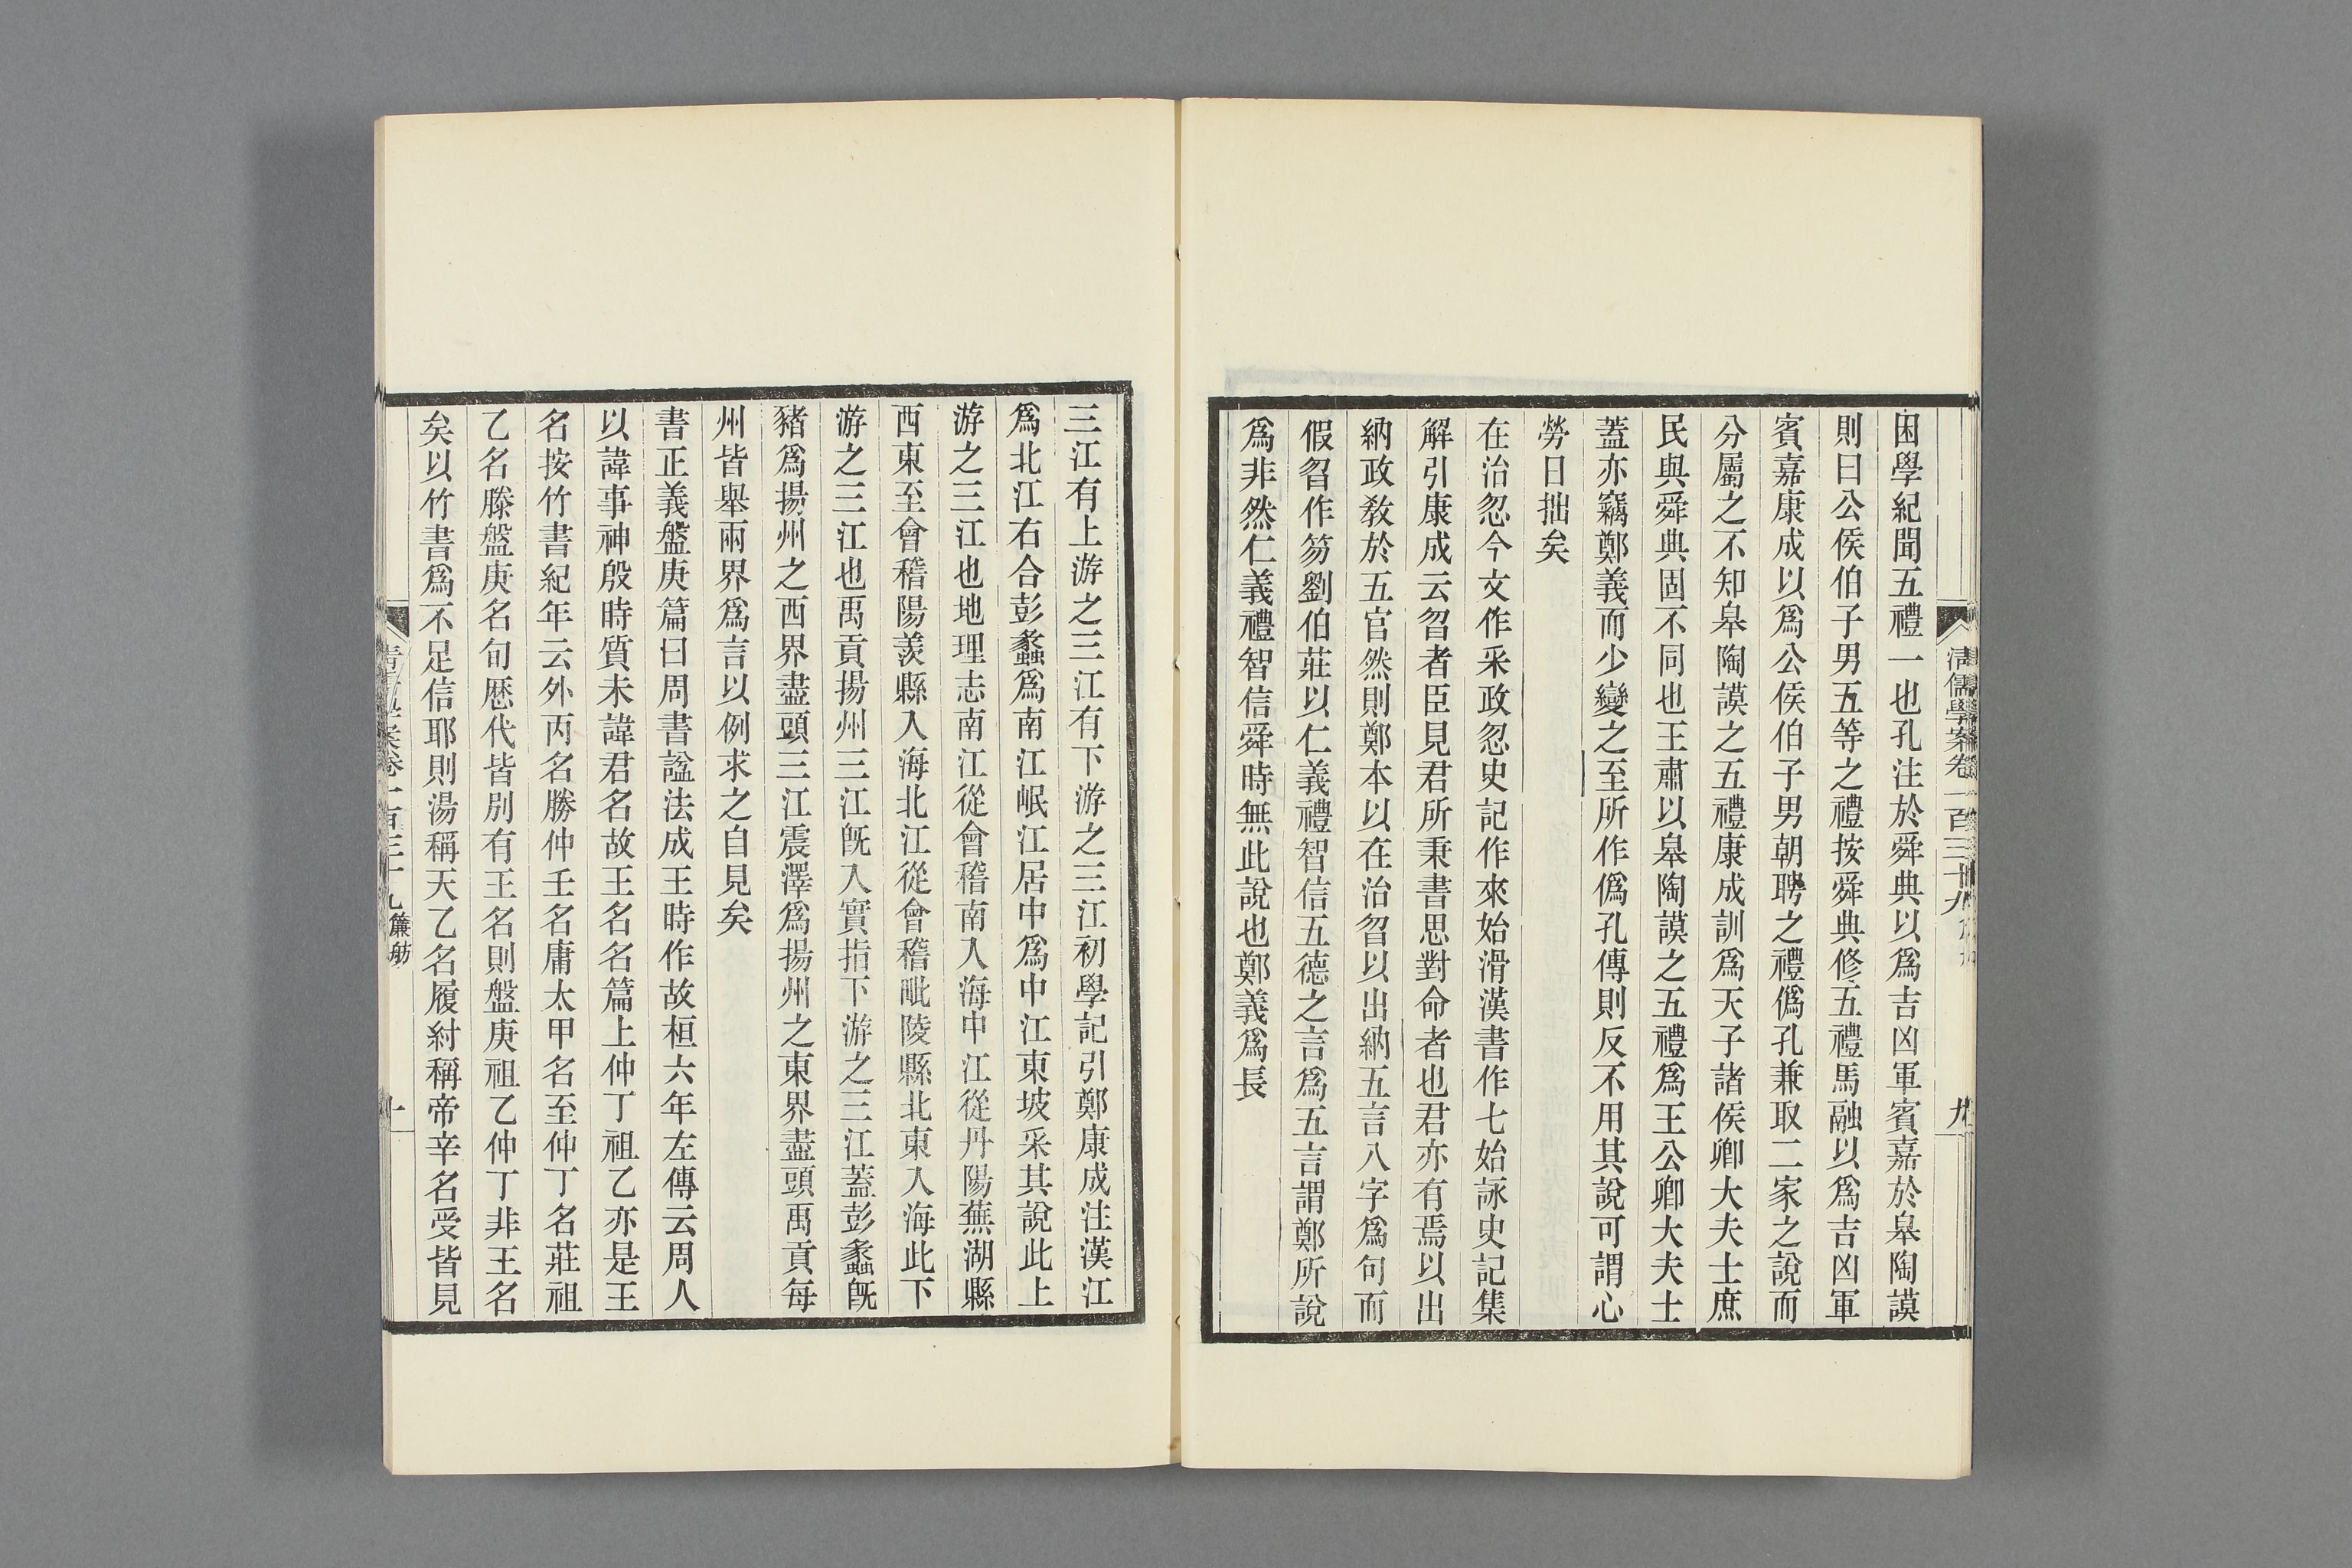 清儒學案卷一百三十九
九
困學紀聞五禮一也孔注於舜典以爲吉凶軍賓嘉於皋陶謨
則曰公侯伯子男五等之禮按舜典修五禮馬融以爲吉凶軍
賓嘉康成以爲公侯伯子男朝聘之禮僞孔兼取二家之說而
分屬之不知皋陶謨之五禮康成訓爲天子諸侯卿大夫士庶
民與舜典固不同也王肅以皋陶謨之五禮爲王公卿大夫士
蓋亦竊鄭義而少變之至所作僞孔傳則反不用其說可謂心
勞日拙矣
在治忽今文作采政忽史記作來始滑漢書作七始詠史記集
解引康成云曶者臣見君所秉書思對命者也君亦有焉以出
納政教於五官然則鄭本以在治曶以出納五言八字爲句而
假曶作笏劉伯莊以仁義禮智信五德之言爲五言謂鄭所說
爲非然仁義禮智信舜時無此說也鄭義爲長
三江有上游之三江有下游之三江初學記引鄭康成注漢江
爲北江右合彭蠡爲南江岷江居中爲中江東坡采其說此上
游之三江也地理志南江從會稽南入海中江從丹陽蕪湖縣
西東至會稽陽羨縣入海北江從會稽毗陵縣北東入海此下
游之三江也禹貢揚州三江旣入實指下游之三江蓋彭蠡旣
豬爲揚州之西界盡頭三江震澤爲揚州之東界盡頭禹貢每
州皆舉兩界爲言以例求之自見矣
書正義盤庚篇曰周書諡法成王時作故桓六年左傳云周人
以諱事神殷時質未諱君名故王名名篇上仲丁祖乙亦是王
名按竹書紀年云外丙名勝仲壬名庸太甲名至仲丁名莊祖
乙名滕盤庚名旬歷代皆別有王名則盤庚祖乙仲丁非王名
矣以竹書爲不足信耶則湯稱天乙名履紂稱帝辛名受皆見
簾舫